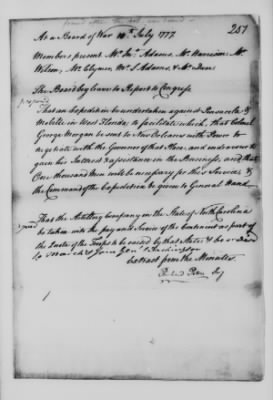 257
At a Board of War 10th July 1777
Members present Mr. Jno. Adams, Mr. Harrison, Mr.
Wilson, Mr. Clymer, Mr. S. Adams, & Mr. Duer
The Board beg leave to Report to Congress
That an Expedition be undertaken against Pensacola &
Mobille in West Florida; to facilitate which, that Colonel
George Morgan be sent to New Orleans with Power to
negotiate with the Governor of that Place, and endeavour to
gain his Interest & assistance in the Business, and that
One thousand Men will be necessary for this Service, &
the Command of the Expedition be given to General Hand
That the Artillery Company in the State of North Carolina
be taken into the pay and Service of the Continent as part of
the Quota of the Troops to be raised by that State & be ordered
to march & join Genl. Washington
Extract from the Minutes
Richd. Peters Secy